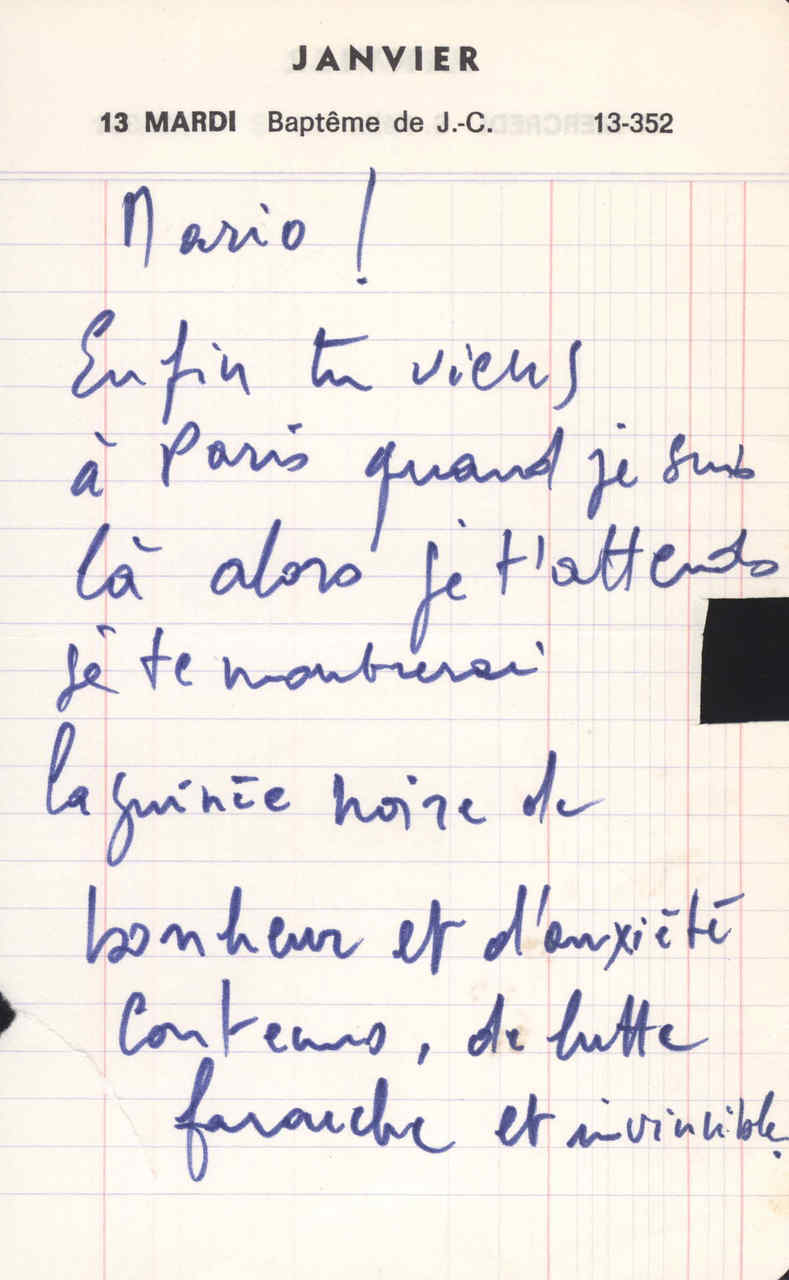 JANVIER
13 MARDI Baptême de J.-C. 13-352
Mario !
Enfin tu viens
à Paris quand je suis
là alors je t'attends
je te montrerai
la guinée noire de
bonheur et d'anxiété
contenus, de lutte
farouche et invincible.